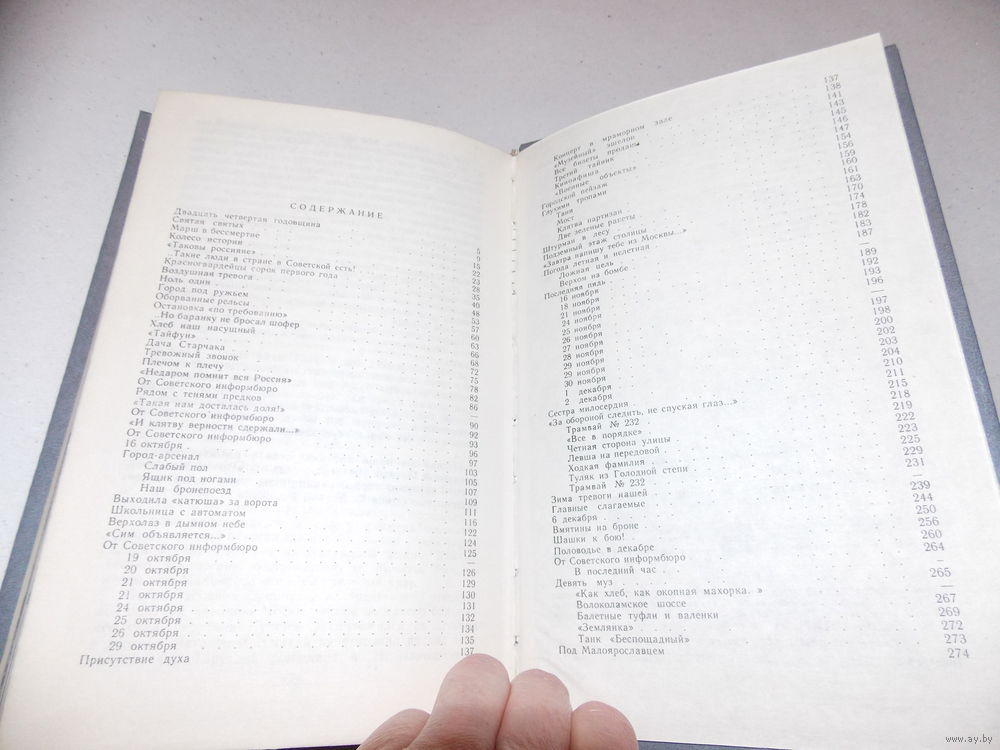 СОДЕРЖАНИЕ
Двадцать четвертая годовщина
Святая святых 5
Марш в бессмертие 9
Колесо истории 15
«Таковы россияне» 22
...Такие люди в стране в Советской есть! 23
Красногвардейцы сорок первого года 28
Воздушная тревога 35
Ноль один 40
Город под ружьем 48
Оборванные рельсы 53
Остановка «по требованию» 57
...Но баранку не бросал шофер 60
Хлеб наш насущный 63
«Тайфун» 66
Дача Старчака 68
Тревожный звонок 72
Плечом к плечу 75
«Недаром помнит вся Россия» 78
От Советского информбюро 82
Рядом с тенями предков 86
«Такая нам досталась доля!» —
От Советского информбюро 90
«И клятву верности сдержали...» 92
От Советского информбюро 93
16 октября 96
Город-арсенал 97
Слабый пол 103
Ящик под ногами 105
Наш бронепоезд 107
Выходила «катюша» за ворота 109
Школьница с автоматом 111
Верхолаз в дымном небе 116
«Сим объявляется...» 122
От Советского информбюро 124
19 октября 125
20 октября —
21 октября 126
21 октября 129
24 октября 130
25 октября 131
26 октября 132
29 октября 134
Присутствие духа 135
137
Концерт в мраморном зале 137
«Музейный» эшелон 138
Все билеты проданы 141
Третий тайник 143
Киноафиша 145
«Военные объекты» 146
Городской пейзаж 147
Глухими тропами 154
Таня 156
Мост 159
Клятва партизан 160
Две зеленые ракеты 161
Штурман в лесу 163
Подземный этаж столицы 170
«Завтра напишу тебе из Москвы...» 174
Погода летная и нелетная 178
Ложная цель 182
Верхом на бомбе 183
Последняя пядь 187
16 ноября —
18 ноября 189
21 ноября 192
24 ноября 193
25 ноября 196
26 ноября —
27 ноября 197
28 ноября 198
29 ноября 200
29 ноября 202
30 ноября 203
1 декабря 204
2 декабря 210
Сестра милосердия 211
«За обороной следить, не спуская глаз...» 215
Трамвай № 232 218
«Все в порядке» 219
Четная сторона улицы 222
Левша на передовой 223
Ходкая фамилия 225
Туляк из Голодной степи 229
Трамвай № 232 231
Зима тревоги нашей —
Главные слагаемые 239
6 декабря 244
Вмятины на броне 250
Шашки к бою! 256
Половодье в декабре 260
От Советского информбюро 264
В последний час
Девять муз 265
«Как хлеб, как окопная махорка..» —
Волоколамское шоссе 267
Балетные туфли и валенки 269
«Землянка» 272
Танк «Беспощадный» 273
Под Малоярославцем 274
www.ay.by